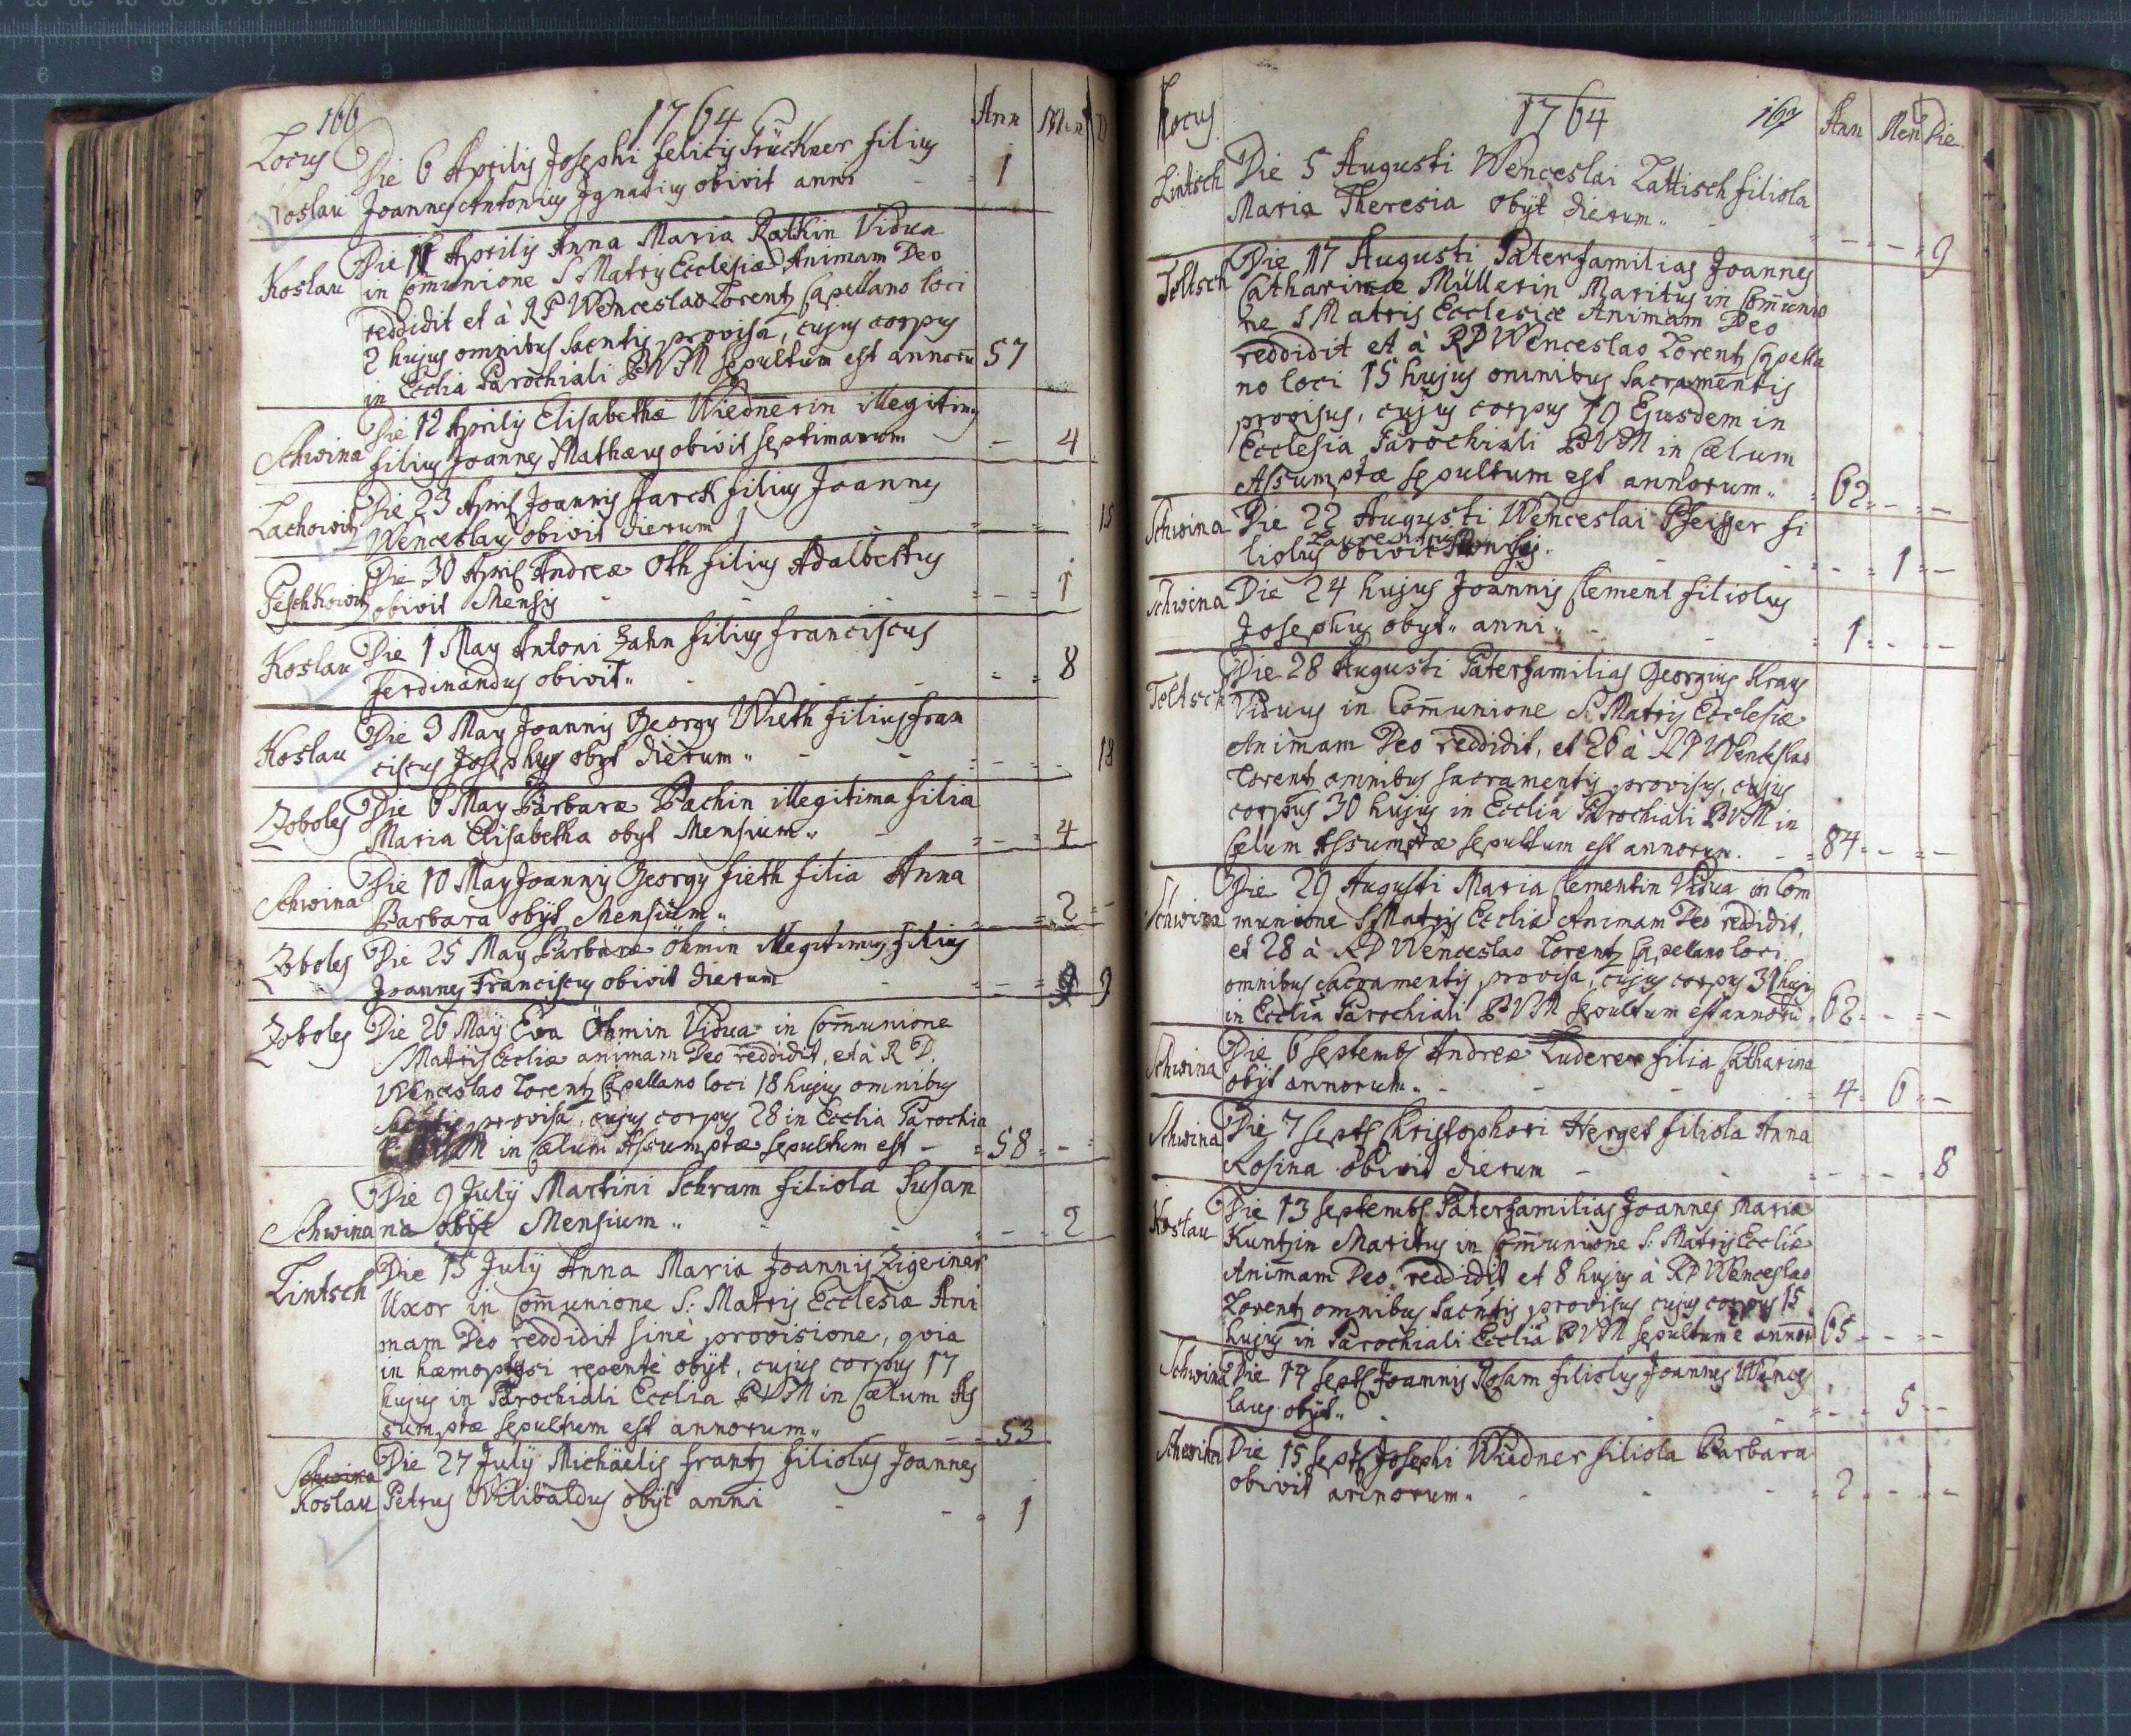 166 1764 Ann Men D
Locus Die 6 Aprilis Josephi Felicis Trückner filius
Koslau Joannes Antonius Ignatius obivit anni - 1
Die 11 Aprilis Anna Maria Rathin Vidua
Koslau in Com̄unione S Matris Ecclesiæ Animam Deo
reddidit et à RP Wenceslao Lorentz Capellano loci
2 hujus omnibus Sacntis provisa, cujus corpus
in Ecclia Parochiali BVM sepultum est annorū 57
Die 12 Aprilis Elisabethæ Wiednerin illegitimus
Schwina filius Joannes Mathæus obivit septimarum - 4
Die 23 April Joannis Starck filius Joannes
Lachowitz Wenceslaus obivit dierum 15
Die 30 April Andreæ Oth filius Adalbertus
Peschkowitz obivit Mensis - - - 1
Koslau Die 1 May Antoni Zahn filius Franciscus
Ferdinandus obivit„ - - - 8
Die 3 May Joannis Georgy Wieth filius Fran
Koslau ciscus Josephus obyt dierum„ - - 18
Zoboles Die 6 May Barbaræ Bachin illegitima filia
Maria Elisabetha obyt Mensium„ - 4
Die 10 May Joannis Georgy Fieth filia Anna
Schwina Barbara obÿt Mensium„ - 2
Zoboles Die 25 May Barbaræ Öhmin illegitimus filius
Joannes Franciscus obivit dierum - 9
Zoboles Die 26 Maÿ Eva Öhmin Vidua in Com̄unione
S Matris Eccliæ animam Deo reddidit, et à R D.
Wenceslao Lorentz Capellano loci 18 hujus omnibus
Sacntis provisa, cujus corpus 28 in Ecclia Parochia
li BVM in Cælum Assumptæ sepultum est - 58
Die 9 Julÿ Martini Schram filiola Susan
Schwina na obÿt Mensium„ - - 2
Die 15 Julÿ Anna Maria Joannis Zigeiner
Lintsch Uxor in Com̄unione S: Matris Ecclesiæ Ani
mam Deo reddidit sinè provisione, quia
in hæmoptysi repentè obÿt, cujus corpus 17
hujus in Parochiali Ecclia BVM in Cælum As
sumptæ sepultum est annorum„ - 53
Schwina Die 27 Julÿ Michäelis Frantz filiolus Joannes
Koslau Petrus Wilibaldus obÿt anni - - 1
Locus 1764 167 Ann Men Die
Lintsch Die 5 Augusti Wenceslai Lattisch filiola
Maria Theresia obÿt dierum„ - 9
Die 17 Augusti Paterfamilias Joannes
Teltsch Catharinæ Müllerin Maritus in Com̄unio
ne S Matris Ecclesiæ Animam Deo
reddidit et à RP Wenceslao Lorentz Capella
no loci 15 hujus omnibus Sacramentis
provisus, cujus corpus 19 Ejusdem in
Ecclesia Parochiali BVM in Cælum
Assumptæ sepultum est annorum„ 62
Schwina Die 22 Augusti Wenceslai Pfeiffer fi
Laurentius
liolus obivit Mensis - 1
Schwina Die 24 hujus Joannis Clement filiolus
Josephus obyt„ anni„ - 1
Die 28 Augusti Paterfamilias Georgius Kraus
Teltsch Viduus in Com̄unione S: Matris Ecclesiæ
Animam Deo reddidit, et 26 à RP Wenceslao
Lorentz omnibus sacramentis provisus, cujus
corpus 30 hujus in Ecclia Parochiali BVM in
Cælum Assumptæ sepultum est annorum. - 84
Die 29 Augusti Maria Clementin Vidua in Com
Schwina munione S Matris Eccliæ Animam Deo reddidit,
et 28 à RP Wenceslao Lorentz Capellano loci
omnibus Sacramentis provisa, cujus corpus 31 huj
in Ecclia Parochiali BVM sepultum est annorū 62
Die 6 Septembs Andreæ Luderer filia Catharina
Schwina obÿt annorum. - - 4 6
Schwina Die 7 Septs Christophori Herget filiola Anna
Rosina obivit dierum - 8
Die 13 Septembs Paterfamilias Joannes Mariæ
Koslau Kuntzin Maritus in Com̄unione S: Matris Eccliæ
Animam Deo reddidit et 8 hujus à RP Wenceslao
Lorentz omnibus Sacntis provisus cujus corpus 15
hujus in Parochiali Ecclia BVM sepultum ē annor 65
Schwina Die 14 Septs Joannis Rosam filiolus Joannes Wences
laus obÿt„ - 5
Schwina Die 15 Septs Josephi Wiedner filiola Barbara
obivit annorum„ - - - 2